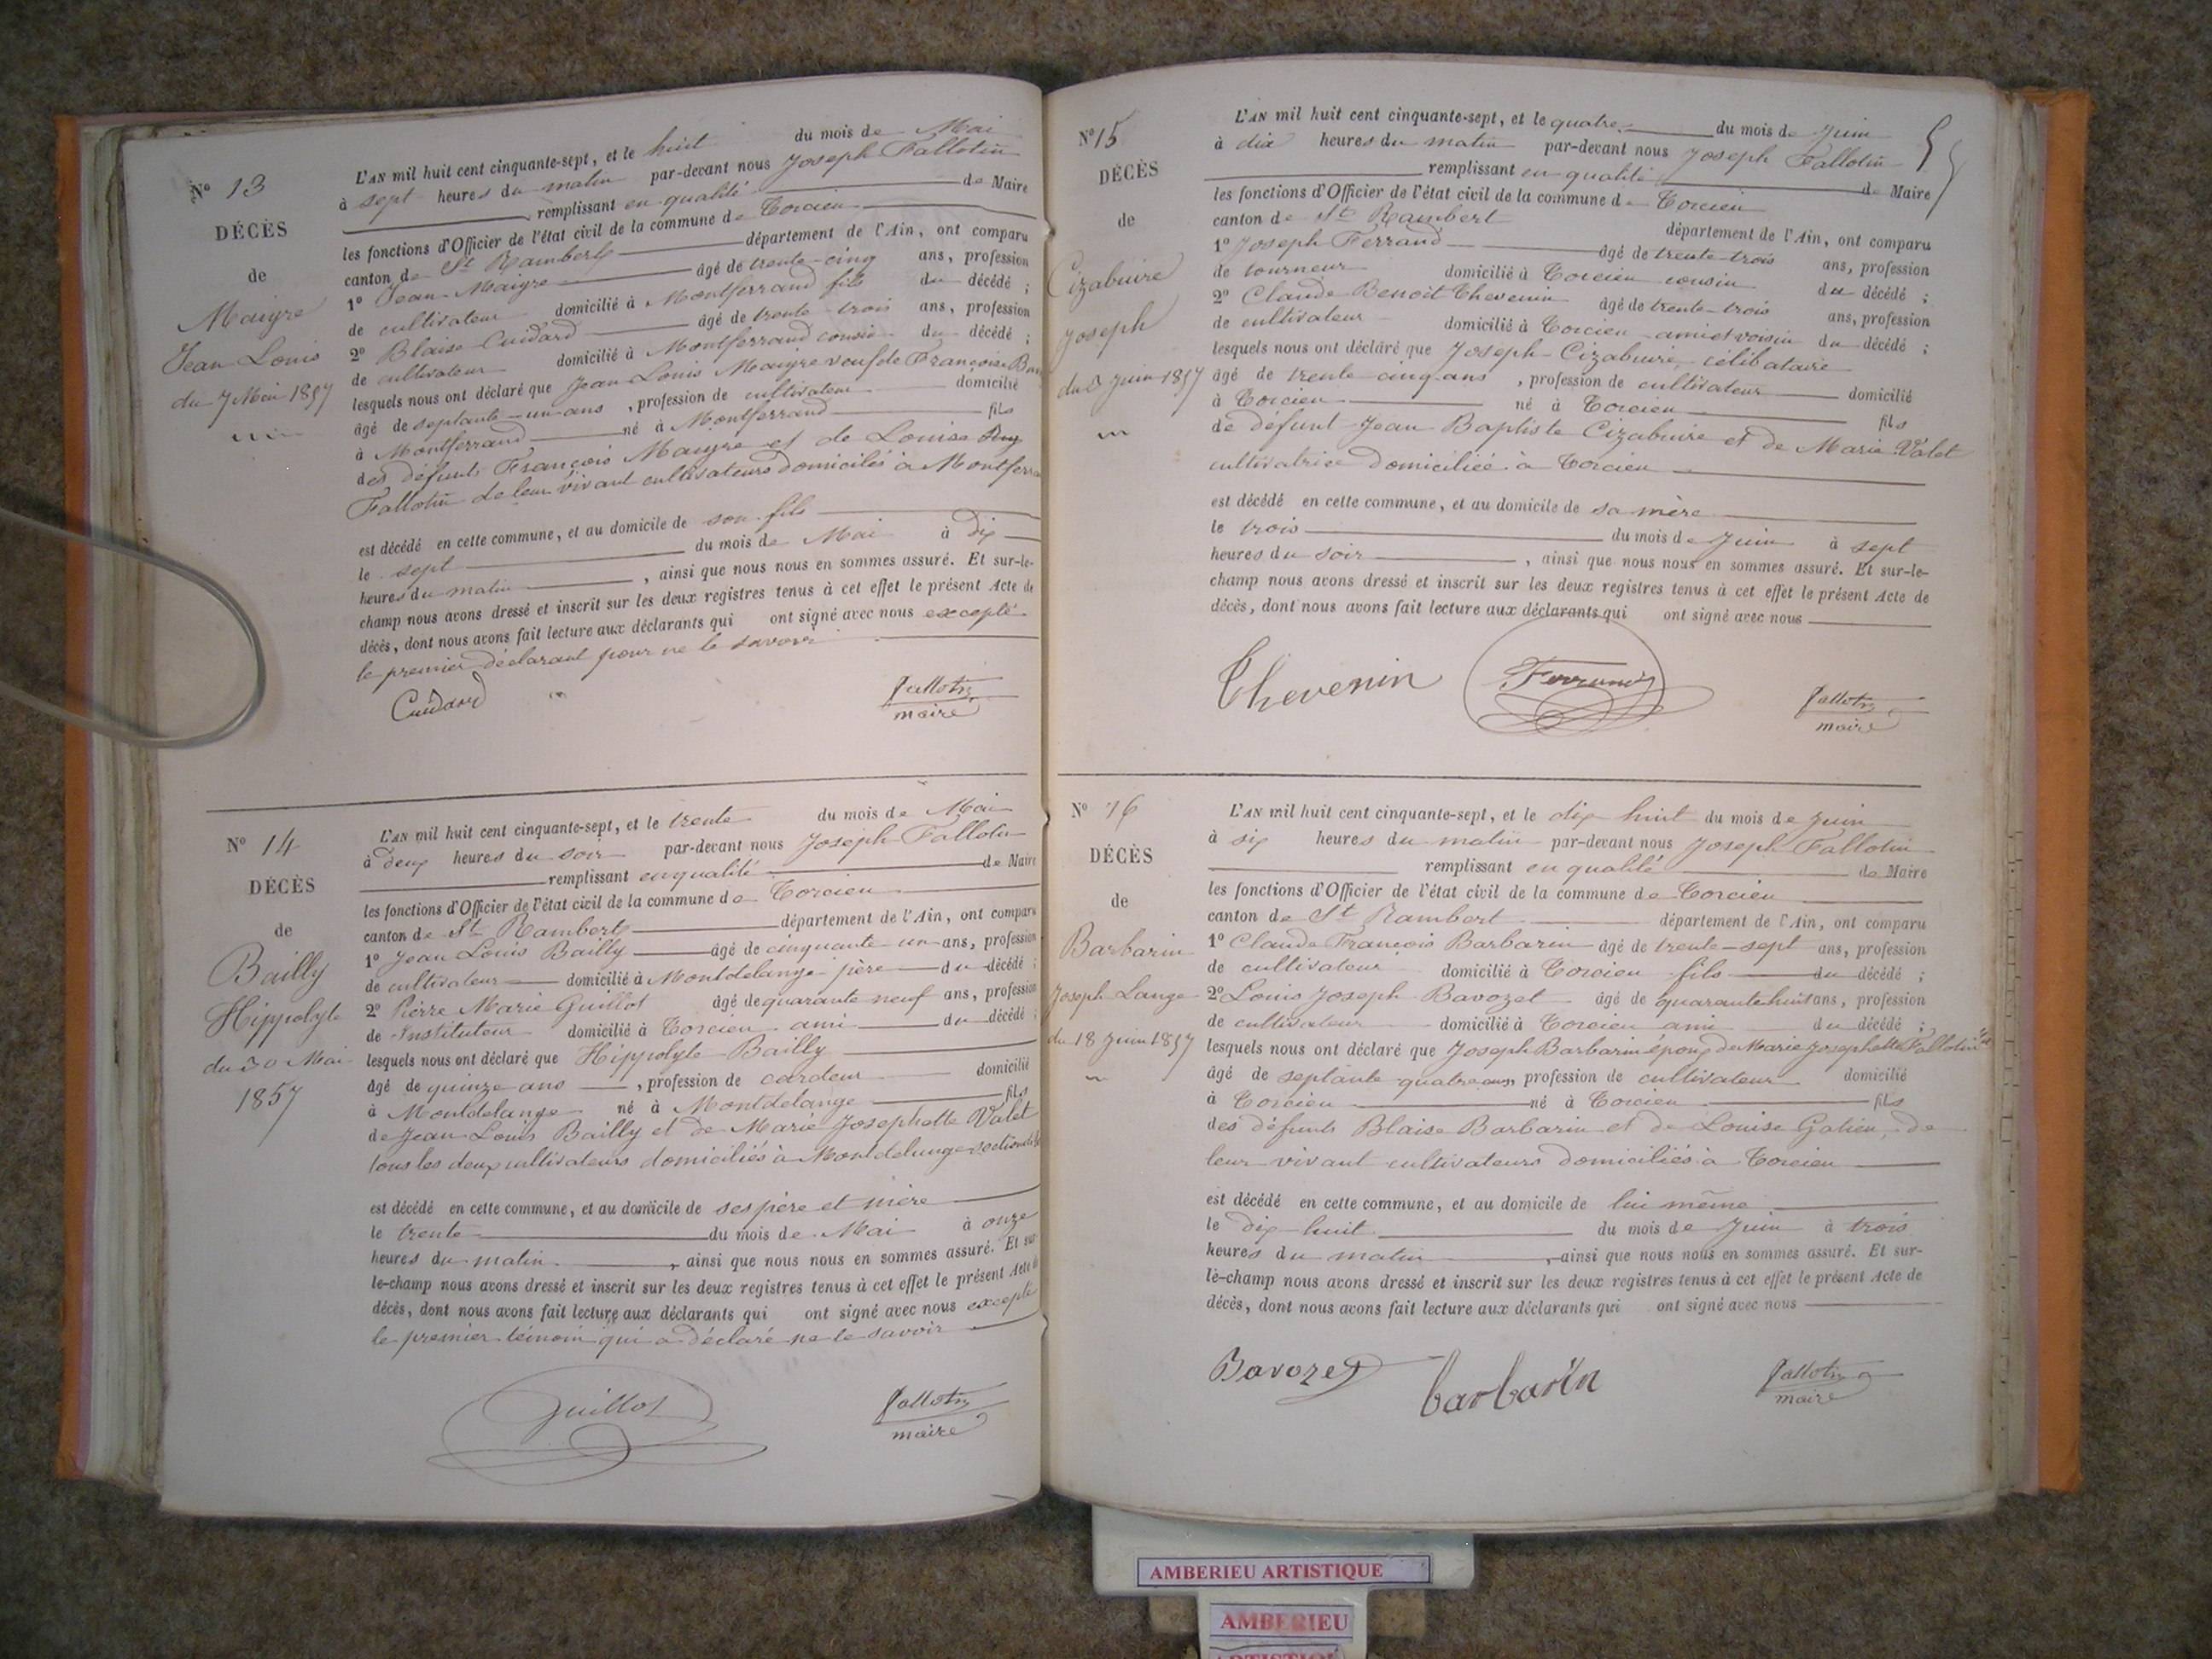 N° 13
DÉCÈS
de
Maigre
Jean Louis
du 7 Mai 1857
L'AN mil huit cent cinquante-sept, et le huit du mois de Mai
à sept heures du matin par-devant nous Joseph Fallotin
remplissant en qualité de Maire
les fonctions d'Officier de l'état civil de la commune de Torcieu
canton de St Rambert département de l'Ain, ont comparu
1° Jean Maigre âgé de trente-cinq ans, profession
de cultivateur domicilié à Montferrand fils du décédé ;
2° Blaise Cuidard âgé de trente trois ans, profession
de cultivateur domicilié à Montferrand cousin du décédé ;
lesquels nous ont déclaré que Jean Louis Maigre veuf de Françoise
âgé de septante-un ans, profession de cultivateur domicilié
à Montferrand né à Montferrand fils
des défunts François Maigre et de Louise
Fallotin de leur vivant cultivateurs domiciliés à Montferrand
est décédé en cette commune, et au domicile de son fils
le sept du mois de Mai à dix
heures du matin, ainsi que nous nous en sommes assuré. Et sur-le-
champ nous avons dressé et inscrit sur les deux registres tenus à cet effet le présent Acte de
décès, dont nous avons fait lecture aux déclarants qui ont signé avec nous excepté
le premier déclarant pour ne le savoir
Cuidard
fallotin
maire
N° 14
DÉCÈS
de
Bailly
Hippolyte
du 30 Mai
1857
L'AN mil huit cent cinquante-sept, et le trente du mois de Mai
à deux heures du soir par-devant nous Joseph Fallotin
remplissant en qualité de Maire
les fonctions d'Officier de l'état civil de la commune de Torcieu
canton de St Rambert département de l'Ain, ont comparu
1° Jean Louis Bailly âgé de cinquante un ans, profession
de cultivateur domicilié à Montdelange père du décédé ;
2° Pierre Marie Guillot âgé de quarante neuf ans, profession
de Instituteur domicilié à Torcieu ami du décédé ;
lesquels nous ont déclaré que Hippolyte Bailly
âgé de quinze ans, profession de cardeur domicilié
à Montdelange né à Montdelange fils
de Jean Louis Bailly et de Marie Josephette Valet
tous les deux cultivateurs domiciliés à Montdelange section de
est décédé en cette commune, et au domicile de ses père et mère
le trente du mois de Mai à onze
heures du matin, ainsi que nous nous en sommes assuré. Et sur
le-champ nous avons dressé et inscrit sur les deux registres tenus à cet effet le présent Acte de
décès, dont nous avons fait lecture aux déclarants qui ont signé avec nous excepté
le premier témoin qui a déclaré ne le savoir
Guillot
fallotin
maire
N° 15
DÉCÈS
de
Cizabuire
Joseph
du 3 Juin 1857
L'AN mil huit cent cinquante-sept, et le quatre du mois de Juin
à dix heures du matin par-devant nous Joseph Fallotin
remplissant en qualité de Maire
les fonctions d'Officier de l'état civil de la commune de Torcieu
canton de St Rambert département de l'Ain, ont comparu
1° Joseph Ferrand âgé de trente-trois ans, profession
de tourneur domicilié à Torcieu cousin du décédé ;
2° Claude Benoit Thevenin âgé de trente-trois ans, profession
de cultivateur domicilié à Torcieu ami et voisin du décédé ;
lesquels nous ont déclaré que Joseph Cizabuire, célibataire
âgé de trente cinq ans, profession de cultivateur domicilié
à Torcieu né à Torcieu fils
de défunt Jean Baptiste Cizabuire et de Marie Valet
cultivatrice domiciliée à Torcieu
est décédé en cette commune, et au domicile de sa mère
le trois du mois de Juin à sept
heures du soir, ainsi que nous nous en sommes assuré. Et sur-le-
champ nous avons dressé et inscrit sur les deux registres tenus à cet effet le présent Acte de
décès, dont nous avons fait lecture aux déclarants qui ont signé avec nous
Thevenin
Ferrand
fallotin
maire
N° 16
DÉCÈS
de
Barbarin
Joseph Lange
du 18 Juin 1857
L'AN mil huit cent cinquante-sept, et le dix huit du mois de Juin
à six heures du matin par-devant nous Joseph Fallotin
remplissant en qualité de Maire
les fonctions d'Officier de l'état civil de la commune de Torcieu
canton de St Rambert département de l'Ain, ont comparu
1° Claude François Barbarin âgé de trente-sept ans, profession
de cultivateur domicilié à Torcieu fils du décédé ;
2° Louis Joseph Bavozet âgé de quarante huit ans, profession
de cultivateur domicilié à Torcieu ami du décédé ;
lesquels nous ont déclaré que Joseph Barbarin époux de Marie Josephette Fallotin
âgé de septante quatre ans, profession de cultivateur domicilié
à Torcieu né à Torcieu fils
des défunts Blaise Barbarin et de Louise Galien, de
leur vivant cultivateurs domiciliés à Torcieu
est décédé en cette commune, et au domicile de lui même
le dix huit du mois de Juin à trois
heures du matin, ainsi que nous nous en sommes assuré. Et sur-
le-champ nous avons dressé et inscrit sur les deux registres tenus à cet effet le présent Acte de
décès, dont nous avons fait lecture aux déclarants qui ont signé avec nous
Bavozet
barbarin
fallotin
maire
AMBERIEU ARTISTIQUE
AMBERIEU
ARTISTIQUE